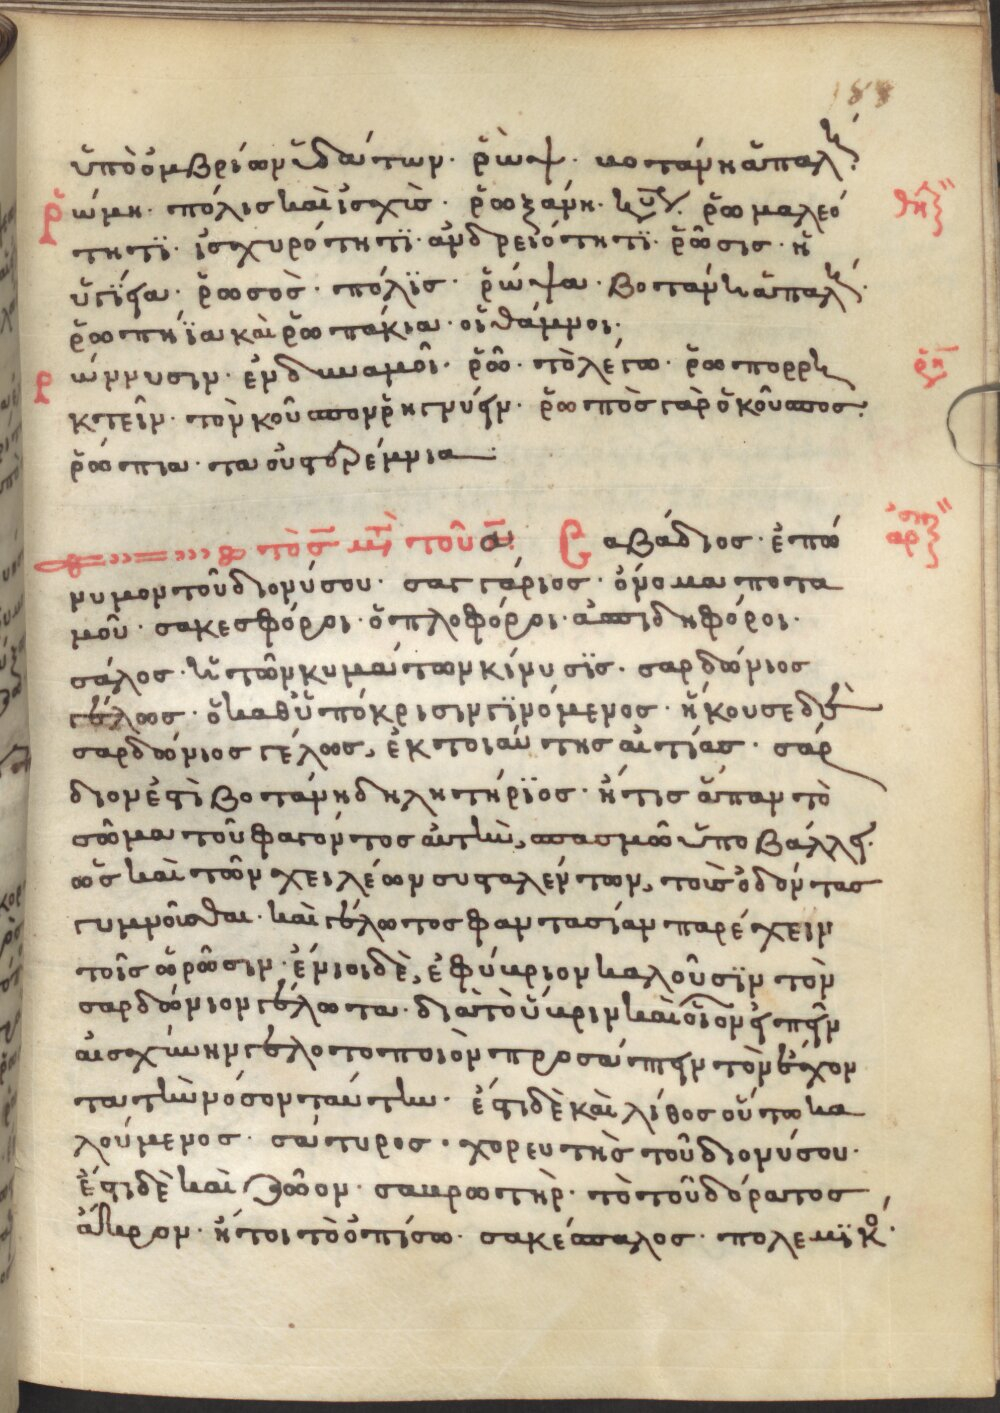 188
ὑπὸ ὀμβρίων ὑδάτων· ῥὼψ· βοτάνη ἁπαλή·
ῥώμη· πόλις καὶ ἰσχὺς· ῥωξάνη· ῥωμαλεό
τητι· ἰσχυρότητι· ἀνδρειότητι· ῥῶσις· ἡ
ὑγίεια· ῥωσὸς· πόλις· ῥώψα· βοτάνη ἁπαλή·
ῥωπήϊα καὶ ῥωπάκια· οἱ θάμνοι·
ῥώννυσιν· ἐνδυναμοῖ· ῥῶ· τὸ λέγω· ῥωπο
κτεῖν· τὸν κοῦφον· ῥωπὸς γὰρ ὁ κοῦφος·
ῥώπια· τα
τὸ σ̅ μετὰ τοῦ α̅· Σαβάδιος· ἐπώ
νυμον τοῦ διονύσου· σαγγάριος· ὄνομα ποτα
μοῦ· σακεσφόροι· ὁπλοφόροι· ἀσπιδηφόροι·
σάλος· ἡ τῶν κυμάτων κίνησις· σαρδώνιος
γέλως· ὁ καθ' ὑπόκρισιν γινόμενος· ἤκουσε δὲ
σαρδώνιος γέλως, ἐκ τοιαύτης αἰτίας· σάρ
διον ἐστὶ βοτάνη δηλητήριος· ἥτις ἅπαν τὸ
σῶμα τοῦ φαγόντος αὐτὴν, σπασμῶ ὑποβάλλει·
ὡς καὶ τῶν χειλέων συσταλέντων, τοὺς ὀδόντας
γυμνοῦσθαι· καὶ γέλωτος φαντασίαν παρέχειν
τοῖς ὁρῶσιν· ἔνιοι δὲ, ἐφύκριον καλοῦσιν τὸν
σαρδώνιον γέλωτα· διὰ τὸ ὕκριν καὶ οἷον εἰπεῖν
αἰσχύνην γελοτοποιὸν προσάπτειν τὸν ἔχον
τα τὴν νόσον ταύτην· ἔστι δὲ καὶ λίθος οὕτω κα
λούμενος· σάτυρος· χορευτὴς τοῦ διονύσου·
ἔστι δὲ καὶ ζῶον· σαυρωτὴρ· τὸ τοῦ δόρατος
ἄκρον· ἤτοι τὸ ὀπίσω· σακέσπαλος· πολεμικὸ·